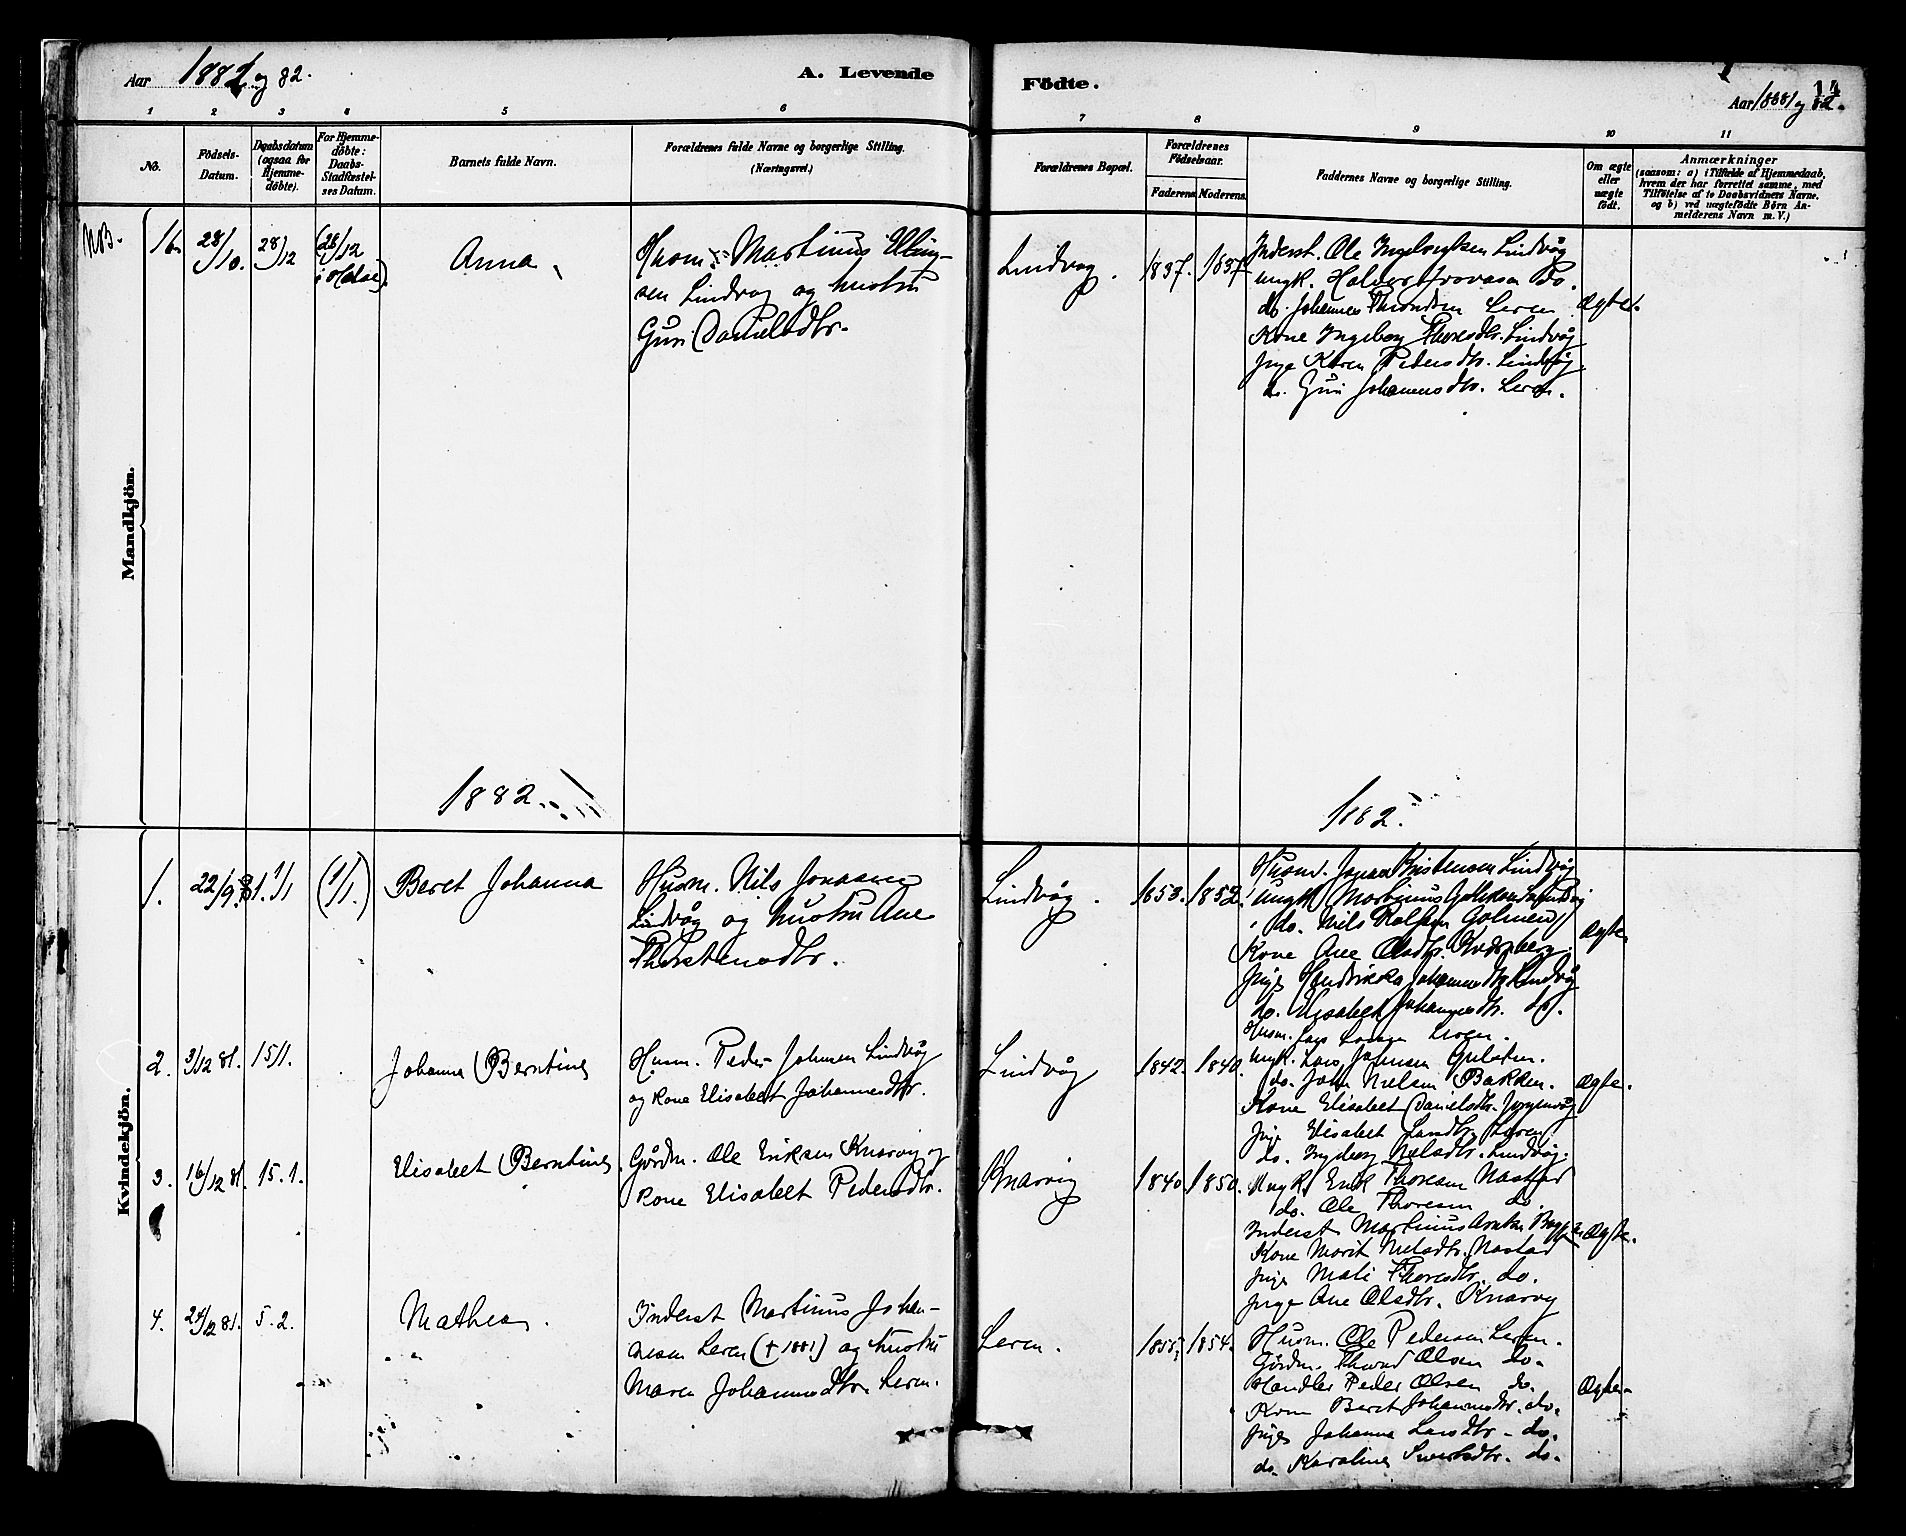 Aar 1881 og 82.
A. Levende
Födte.
14
Aar 1881 og 82.
1 2 3 4 5 6
7 8 9 10 11
No.
Födsels-Datum.
Daabsdatum (ogsaa for Hjemmedöbte).
For Hjemmedöbte: Daabs-Stadfæstelses Datum.
Barnets fulde Navn.
Forældrenes fulde Navne og borgerlige Stilling.
(Næringsvei.)
Forældrenes Bopæl.
Forældrenes Födselsaar.
Faderens. Moderens.
Faddernes Navne og borgerlige Stilling.
Om ægte eller uægte födt.
Anmærkninger
(saasom: a) i Tilfælde af Hjemmedaab,
hvem der har forrettet samme, med
Tilföielse af to Daabsvidners Navne,
og b) ved uægtefödte Börn Anmelderens Navn m. V.)
Mandkjön.
NB. 16. 28/10. 28/12 (28/12 i Halse). Anna
Husm. Martinus Elling-
sen Lindvog og hustru
Guri Danielsdtr.
Lindvog. 1837. 1837
Inderst. Ole Ingebrigtsen Lindvåg
ungk. Halvor Do.
do. Johannes Throndsen Leren
Kone Ingeborg Thoresdtr. Lindvåg
Pige Karen Pedersdtr. Lindvåg
do. Guri Johannesdtr. Leren.
Ægte.
1882.
1882.
Kvindekjön.
1. 22/9. 81. 1/1 (1/1.) Beret Johanna
Husm. Nils Jonasen
Lindvåg og hustru Ane
Thorstensdtr.
Lindvåg. 1853. 1852.
Husm. Jonas Kristensen Lindvåg
ungk. Martinus
do. Nils Golmen
Kone Ane Olsdtr. Kvernberg.
Pige Hendrikka Johannesdtr. Lindvåg
do. Elisabet Johannesdtr. do.
Ægte.
2. 3/12 81. 15/1. Johanna Berntine
Husm. Peder Johnsen Lindvåg
og kone Elisabet Johannesdtr.
Lindvåg 1842. 1840.
Husm. Lars
Ungk. Lars Johnsen
do. John Nielsen Bakken.
Kone Elisabet Danielsdtr.
Pige Elisabet Larsdtr. Leren
do. Ingeborg Nielsdtr. Lindvåg.
Ægte.
3. 16/12 81. 15.1. Elisabet Berntine
Gårdm. Ole Eriksen Knarvig og
kone Elisabet Pedersdtr.
Knarvig 1840 1850.
Ungk. Erik Thoresen Nastad
do. Ole Thoresen do.
Inderst Martinus
Kone Marit Nielsdtr. Nastad
Pige Mali Thoresdtr. do.
Pige Ane Olsdtr. Knarvig
Ægte.
4. 24/12 81. 5.2. Mathea.
Inderst Martinus Johan-
nesen Leren (+ 1881) og hustru
Maren Johannesdtr. Leren.
Leren. 1855. 1854.
Husm. Ole Pedersen Leren.
Gårdm. Thrond Olsen do.
Handler Peder Olsen do.
Kone Beret Johannesdtr. do.
Pige Johanna Larsdtr. do.
do. Karoline Sivertsdtr. do.
Ægte.